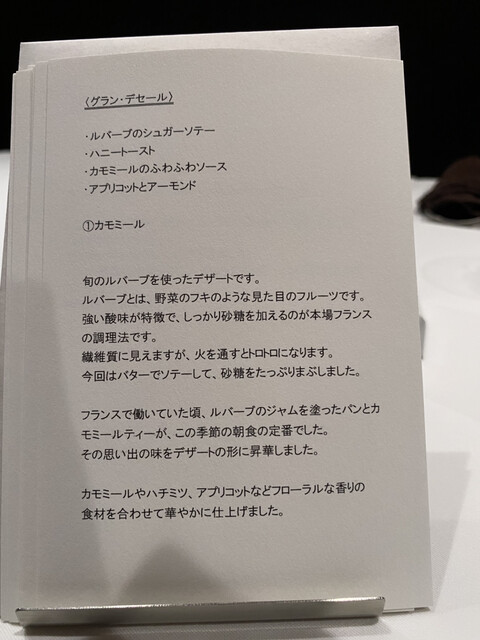 〈グラン・デセール〉
・ルバーブのシュガーソテー
・ハニートースト
・カモミールのふわふわソース
・アプリコットとアーモンド
①カモミール
旬のルバーブを使ったデザートです。
ルバーブとは、野菜のフキのような見た目のフルーツです。
強い酸味が特徴で、しっかり砂糖を加えるのが本場フランス
の調理法です。
繊維質に見えますが、火を通すとトロトロになります。
今回はバターでソテーして、砂糖をたっぷりまぶしました。
フランスで働いていた頃、ルバーブのジャムを塗ったパンとカ
モミールティーが、この季節の朝食の定番でした。
その思い出の味をデザートの形に昇華しました。
カモミールやハチミツ、アプリコットなどフローラルな香りの
食材を合わせて華やかに仕上げました。